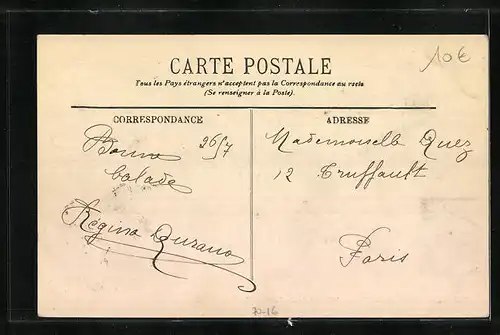 10€
CARTE POSTALE
Tous les Pays étrangers n'acceptent pas la Correspondance au rsels
(Se renseigner à la Poste).
CORRESPONDANCE
ADRESSE
Bonne
balade
Regina Durano
Mademoiselle Quez
12 Truffault
Paris